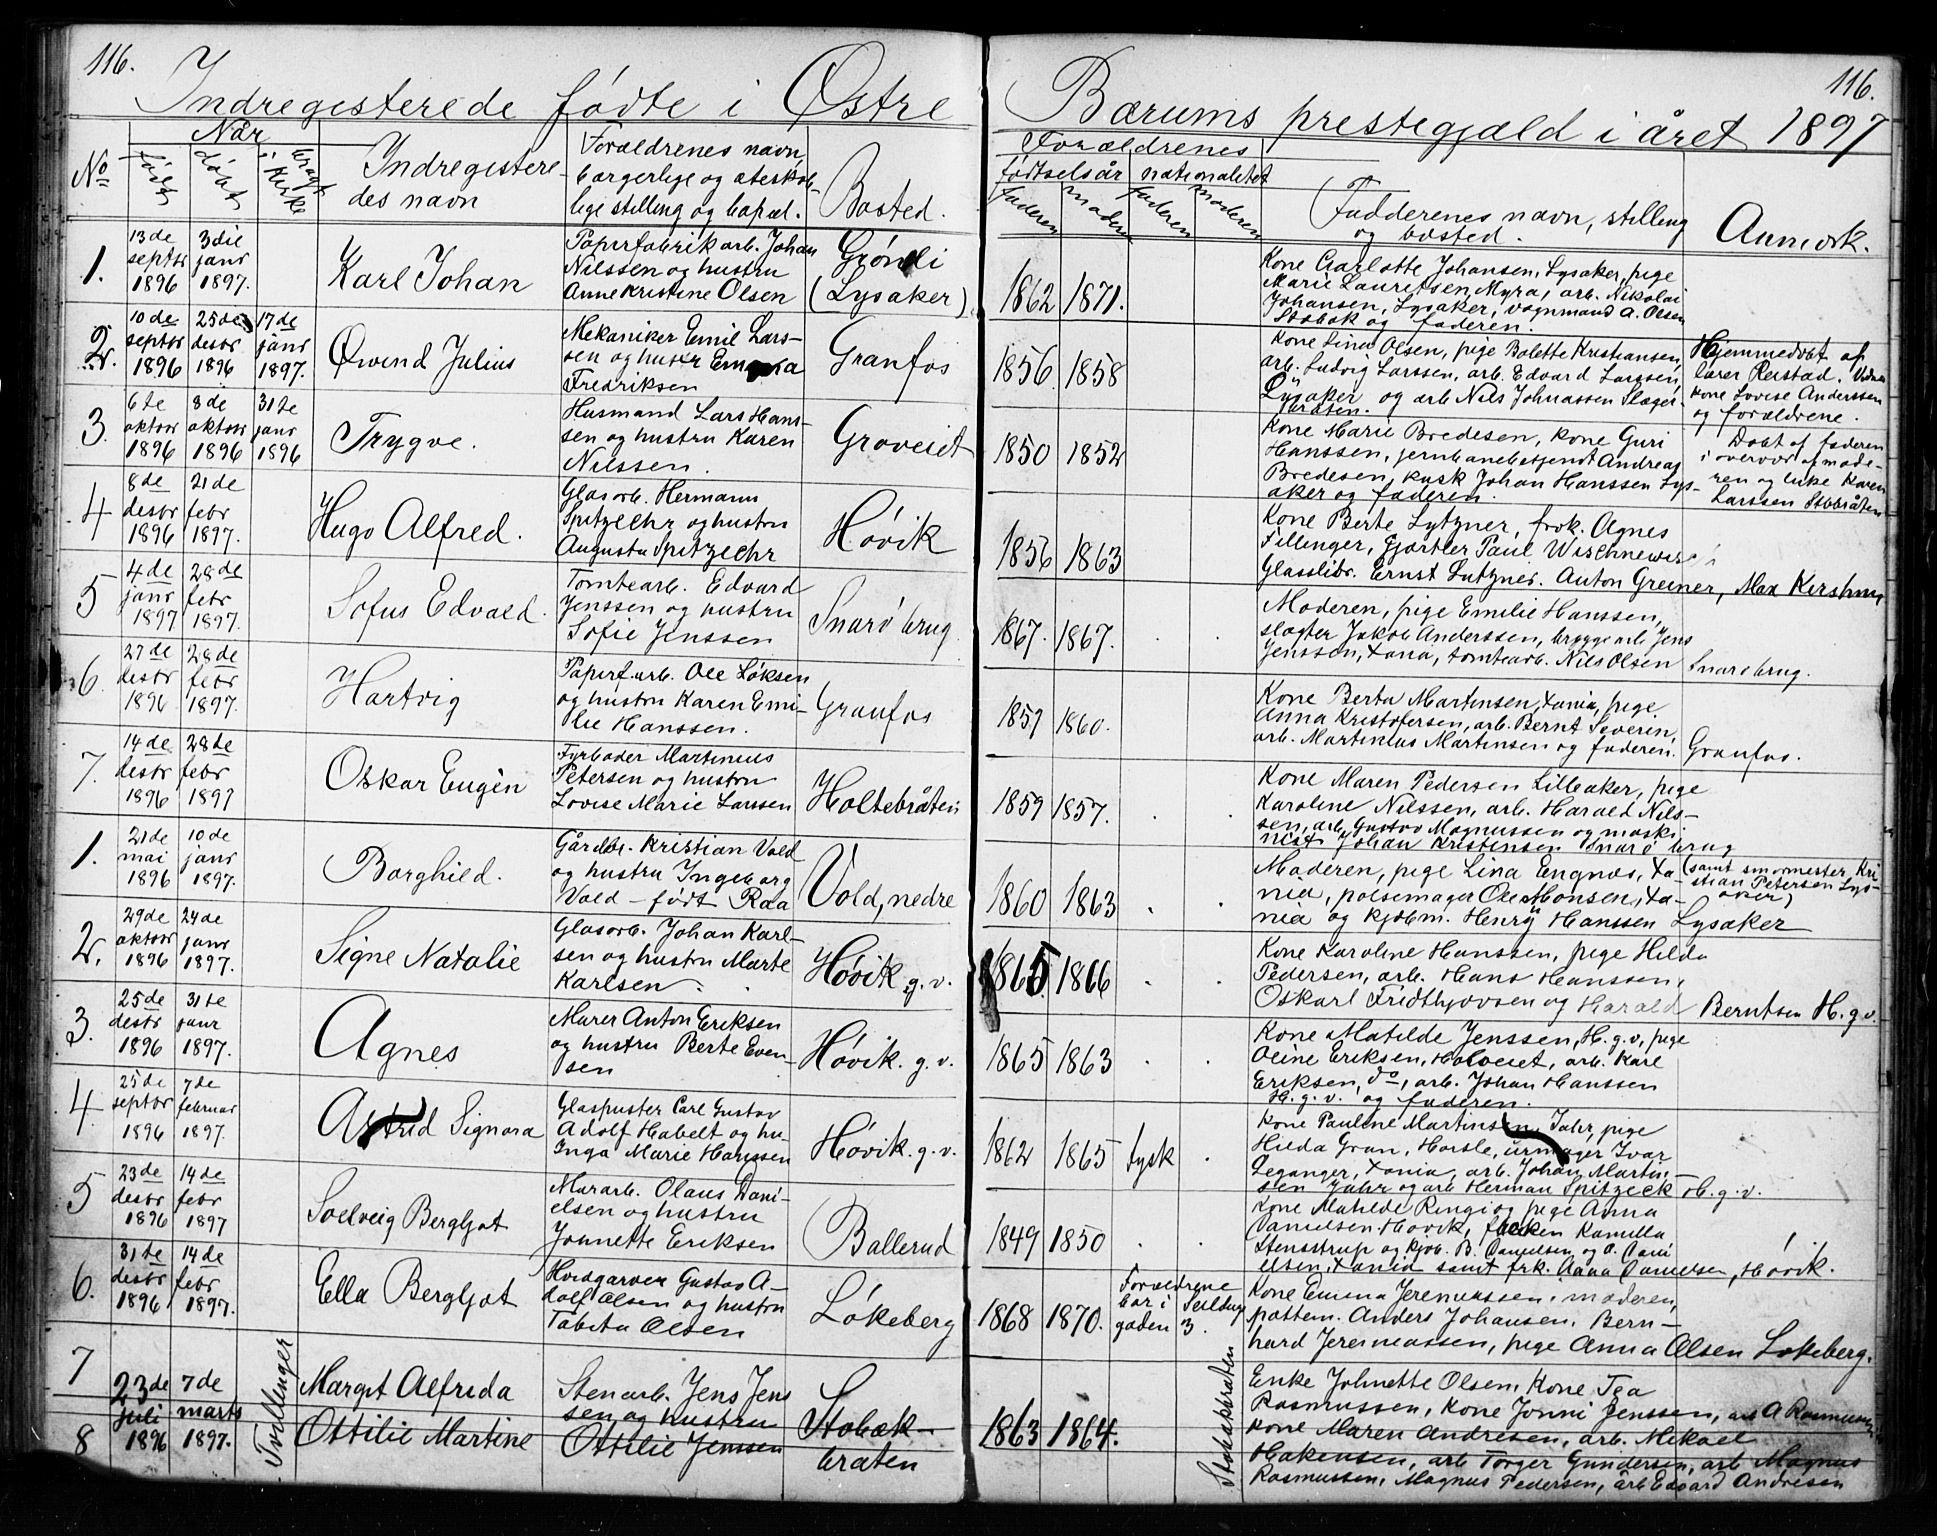 116.
Indregisterede fødte i Østre
Bærums prestegjæld i året 1897
116.
No
Når
født
døbt
bragt i kirke
Indregistere-
des navn
Forældrenes navn,
borgerlige og
lige stilling og bopæl.
Bosted.
Forældrenes
fødselsår
nationalitet
faderen
moderen
faderen
moderen
Fadderenes navn, stilling
og bosted.
Anmerk.
1.
13de
septbr
1896
3die
janr
1897.
Karl Johan
Papirfabrikarb. Johan
Nilssen og hustru
Anne Kristine Olsen
Grøndi
(Lysaker)
1862
1871.
Kone Carlotte Johansen, Lysaker, pige
Marie Lauritsen, Myra, arb. Nikolai
Johansen, Lysaker, vognmand A. Olsen
Stabæk og faderen.
2.
10de
septbr
1896
25de
desbr
1896
17de
janr
1897.
Øivind Julius
Mekaniker Emil Lars-
sen og hustru Emma
Fredriksen
Granfos
1856
1858
Kone Lina Olsen, pige Bolette Kristiansen,
arb. Ludvig Larssen, arb. Edvard Larssen,
Lysaker og arb. Nils Johnassen Slæger-
bråten.
Hjemmedøbt af
lærer Rustad.
kone Lovise Anderssen
og forældrene.
3.
6te
oktbr
1896
8de
oktbr
1896
31te
janr
1896
Trygve.
Husmand Lars Hans-
sen og hustru Karen
Nilssen.
Groveiet
1850
1852
Kone Marie Bredesen, kone Guri
Hanssen, jernbanebetjent Andreas
Bredesen, kusk Johan Hanssen Lys-
aker og faderen.
Døbt af faderen
i overvær af mode-
ren og enke Karen
Larssen Stobråten
4
8de
desbr
1896
21de
febr
1897.
Hugo Alfred.
Glasarb. Hermann
Spitzechr og hustru
Augusta Spitzechr
Høvik
1856
1863
Kone Berte Lytzner, frøk. Agnes
Fillinger, Gjørtler Paul
Glasslibr. Ernst Lutzner. Anton Greiner, Max
5
4de
janr
1897
28de
febr
1897.
Sofus Edvald.
Tomtearb. Edvard
Jenssen og hustru
Sofie Jenssen
Snarø brug.
1867.
1867.
Moderen, pige Emilie Hanssen,
slagter Jakob Anderssen, bryggearb. Jens
Jenssen, Xania, tomtearb. Nils Olsen Snarø brug.
6.
27de
desbr
1896
28de
febr
1897.
Hartvig
Papirf.arb. Ole Løksen
og hustru Karen Emi-
lie Hanssen.
Granfos
1859
1860.
Kone Berta Martinsen, Xania, pige
Anna Kristofersen, arb. Bernt Severin,
arb. Martinius Martinsen og faderen. Granfos.
7.
14de
desbr
1896
28de
febr
1897
Oskar Eugèn
Fyrbøder Martinius
Petersen og hustru
Lovise Marie Larssen
Holtebråten
1859
1857.
Kone Maren Pedersen Lilleaker, pige
Karoline Nilssen, arb. Harald Nils-
sen, arb. Gustav Magnussen og maski-
nist Johan Kristensen Snarø brug
1.
21de
mai
1896
10de
janr
1897.
Borghild.
Gårdbr. Kristian Vold
og hustru Ingeborg
Vold – født Raa
Vold, nedre
1860
1863
Moderen, pige Lina Engnæs, Xa-
nia, pølsemager Ole Monsen, Xa-
nia og kjøbm. Henry Hanssen Lysaker
(samt smørmester Kri-
stian Petersen Lys-
aker)
2.
29de
oktbr
1896
24de
janr
1897.
Signe Natalie
Glasarb. Johan Karl-
sen og hustru Marte
Karlsen.
Høvik g.v.
1865.
1866
Kone Karoline Hanssen, pige Hilda
Pedersen, arb. Hans Hanssen,
Oskarl Fridthjovsen og Harald Berntsen H.g.v.
3.
25de
desbr
1896
31te
janr
1897.
Agnes
Murer Anton Eriksen
og hustru Berte Even-
sen
Høvik. g.v.
1865
1863
Kone Matilde Jenssen, H.g.v, pige
Oline Eriksen, Holveiet, arb. Karl
Eriksen, do, arb. Johan Hanssen
H.g.v. og faderen.
4.
25de
septbr
1896
7de
februar
1897.
Astrid Signora
Glaspuster Carl Gustav
Adolf Habelt og hu-
Inga Marie Hanssen
Høvik. g.v.
1862
1865
tysk
Kone Pauline Martinsen, Jahr, pige
Hilda Gran, Horsle, urmager Ivar
Leganger, Xania, arb. Johan Martin-
sen Jahr og arb Herman Spitzeck H.g.v.
5
23de
desbr
1896
14de
febr
1897
Solveig Bergljot
Murarb. Olaus Dani-
elsen og hustru
Jonnette Eriksen
Ballerud
1849
1850
Kone Matilde Ringi og pige Anna
Danielsen Høvik, frøken Kamilla
Stensstrup og kjøb. B. Danielsen og O. Dani
elsen, Xania samt frk. Anna Danielsen, Høvik.
6.
31te
desbr
1896
14de
febr
1897.
Ella Bergljot
Hvidgarver Gustav A-
dolf Olsen og hustru
Tabita Olsen
Løkeberg
1868
1870.
Forældrene
bor i Seildug
gaden 3.
Kone Emma Jeremiassen, moderen,
pottem. Anders Johansen, Bern-
hard Jeremiassen, pige Anna Olsen Løkeberg.
7
8
23de
juli
1896
7de
marts
1897.
Tvillinger
Margit Alfrida
Ottilie Martine
Stenarb. Jens Jens
sen og hustru
Ottilie Jenssen
Stobæk-
bråten
1863
1864.
Stabækbråten
Enke Johnette Olsen, Kone Tea
Rasmussen, Kone Jonni Jenssen, arb A Rasmussen
Kone Maren Andresen, arb. Mikael
Hakensen, arb Torger Gundersen, arb Magnus
Rasmussen, Magnus Pedersen, arb Edvard Andresen